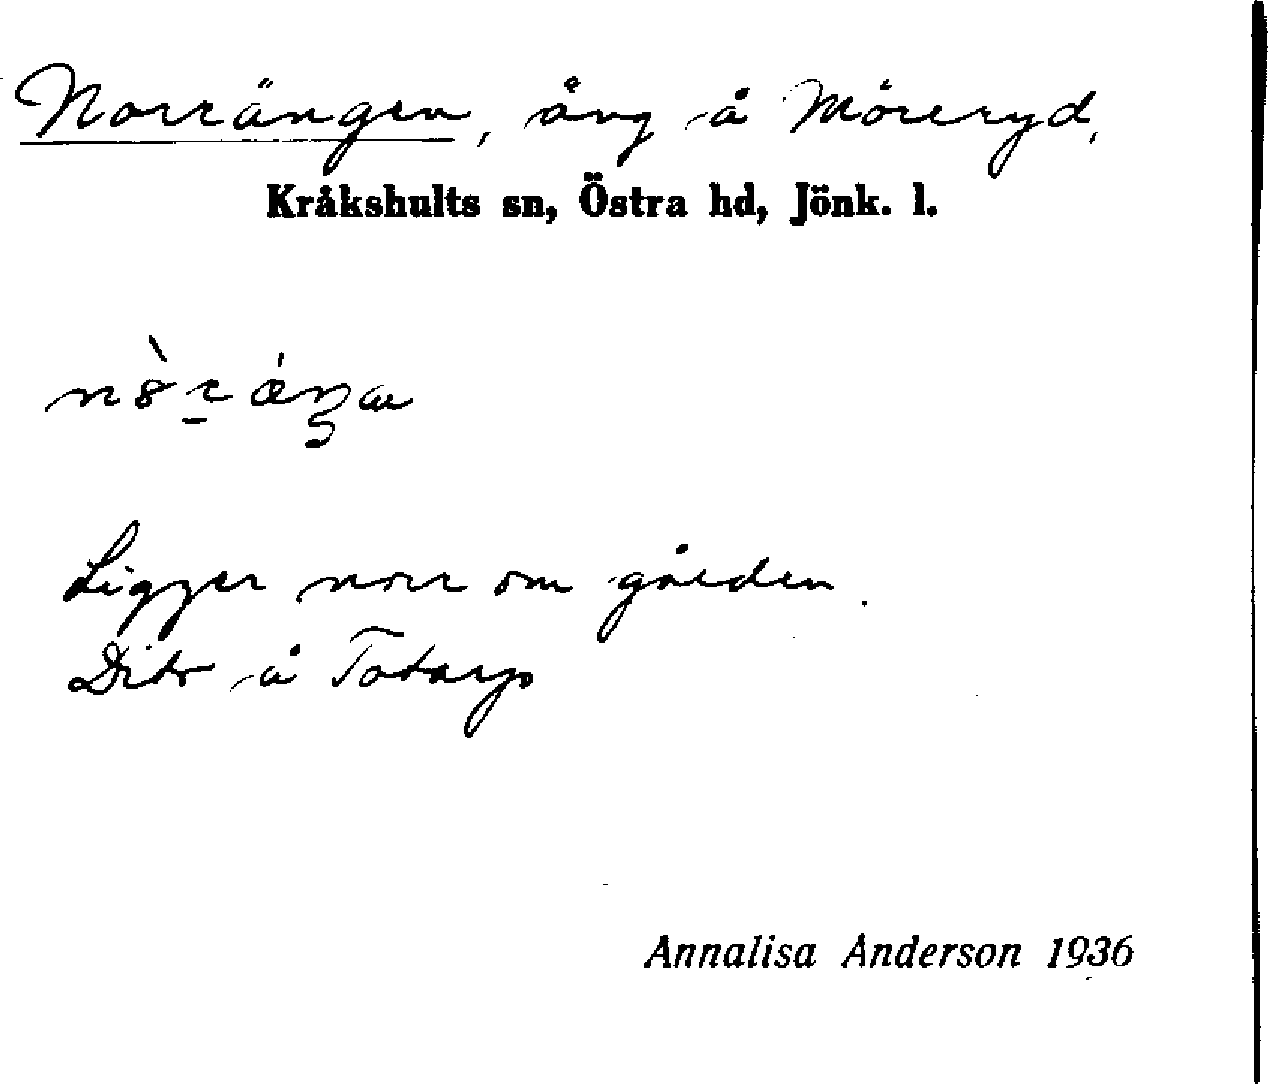 Norrängen, äng å Möreryd,
Kråkshults sn, Östra hd, Jönk. l.
Ligger norr om gården.
Dito å Totarp
Annalisa Anderson 1936